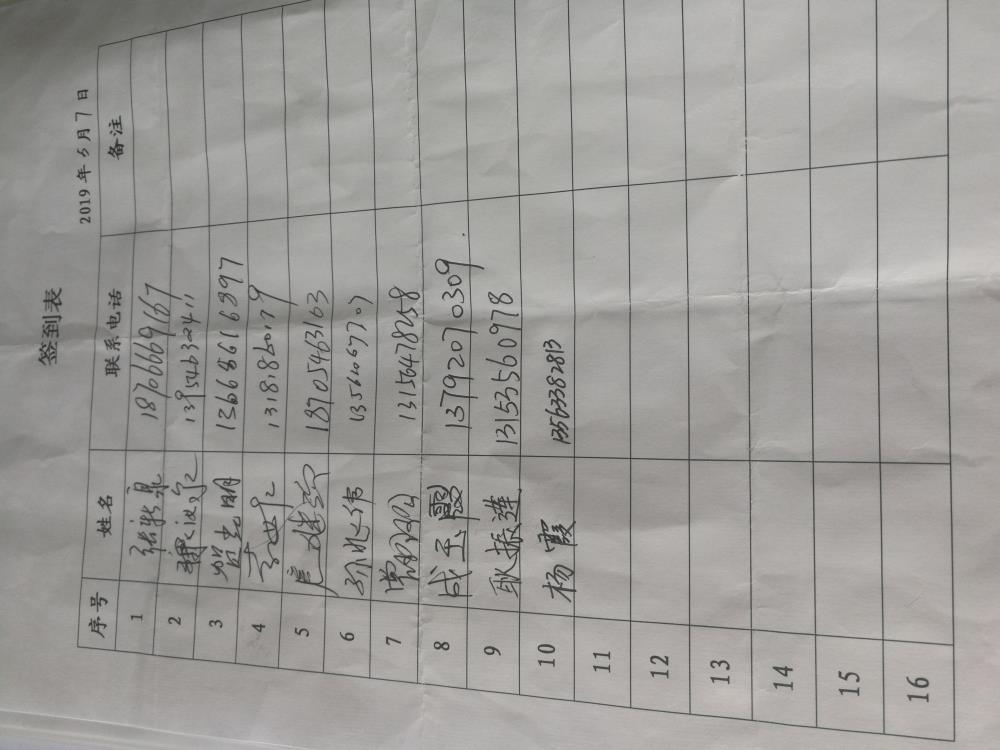 签到表
2019年6月7日
序号 姓名 联系电话 备注
1 张新泉 18766669167
2 13954632411
3 智光明 13668616897
4 13181860179
5 18705463163
6 孙兆伟 13561067707
7 13156478258
8 成玉霞 13792070309
9 耿振莲 13153560978
10 杨霞 13563382813
11
12
13
14
15
16